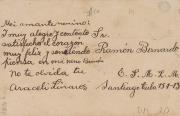 Mi amante nenino:
Muy alegre y contento Sr.
satisfecho el corazón
muy feliz y sonriendo Ramón Bernardo
piensa en mi nena
No te olvida tu E. P. M. L. M.
Araceli Linares Santiago Cuba 15-8-13